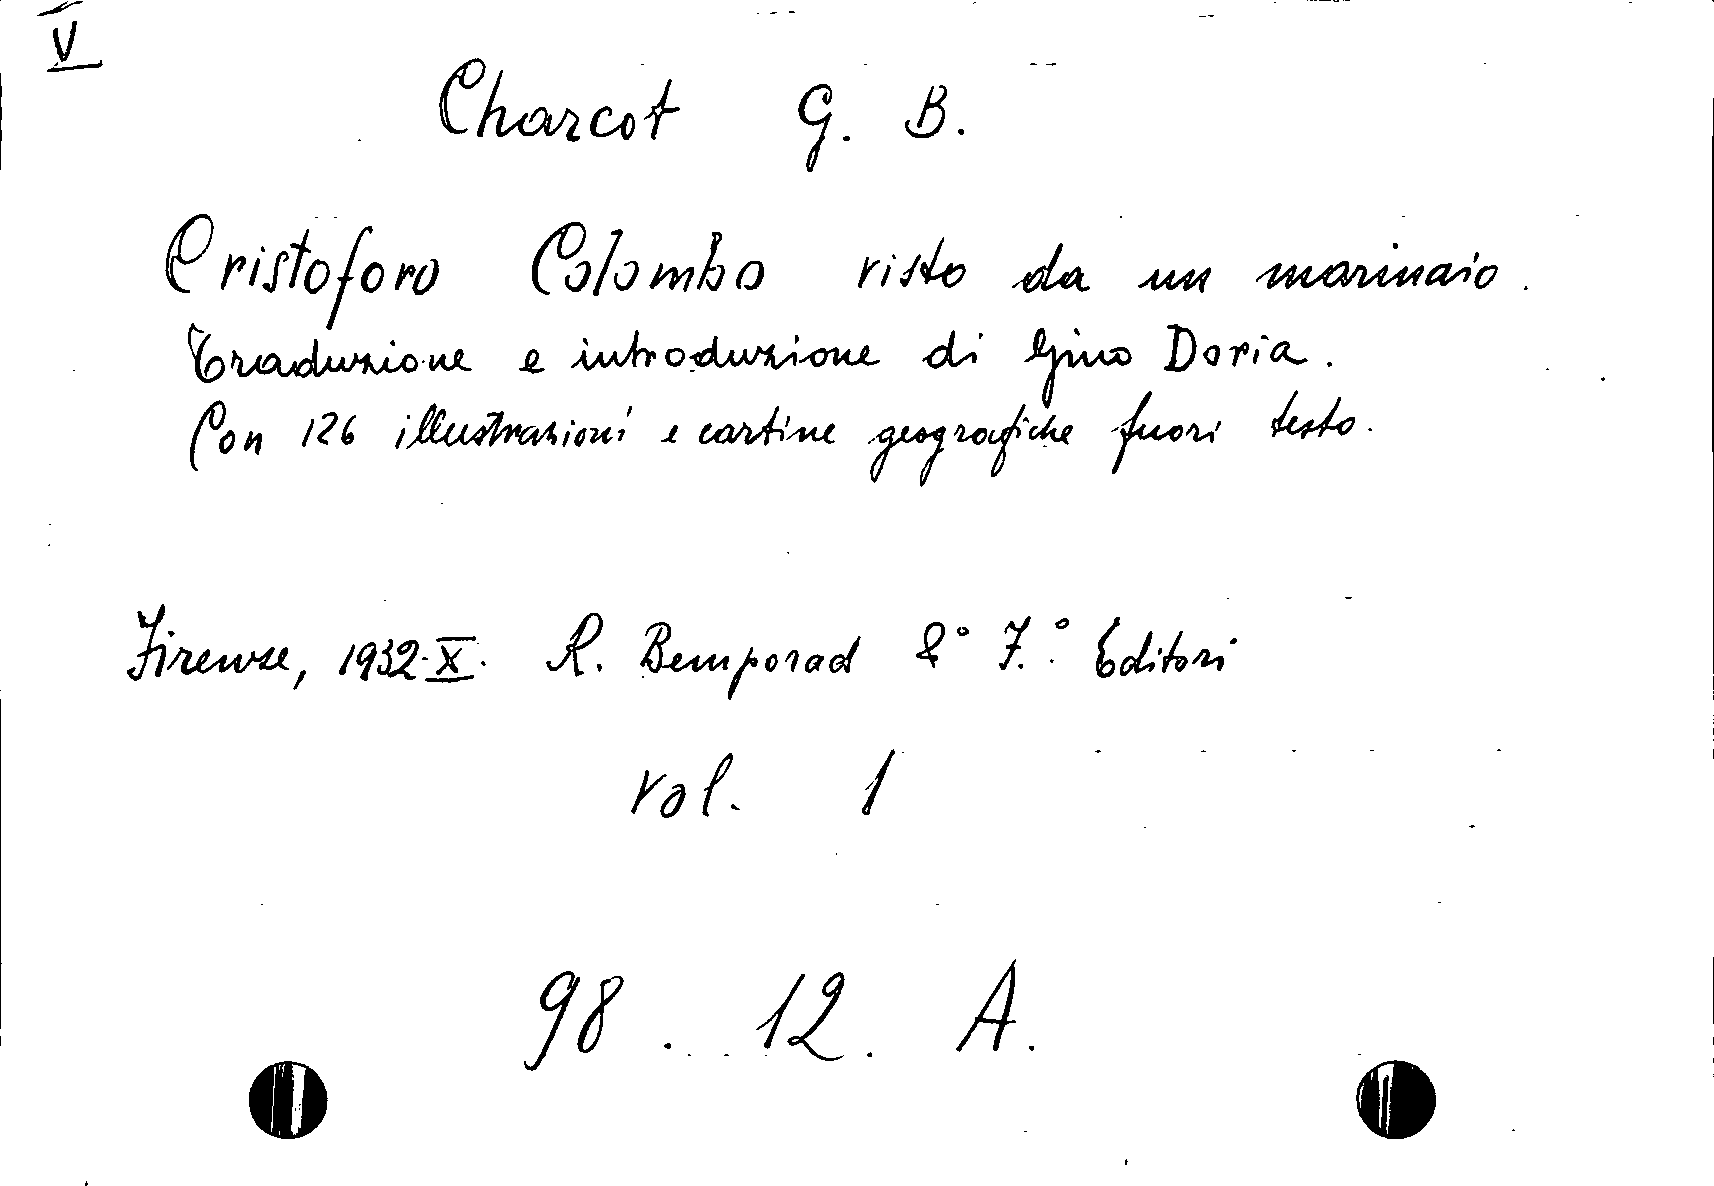 V
Charcot G. B.
Cristoforo Colombo visto da un marinaio.
Traduzione e introduzione di Gino Doria.
Con 126 illustrazioni e cartine geografiche fuori testo.
Firenze, 1932-X. R. Bemporad & F.° Editori
vol. 1
98. 12. A.